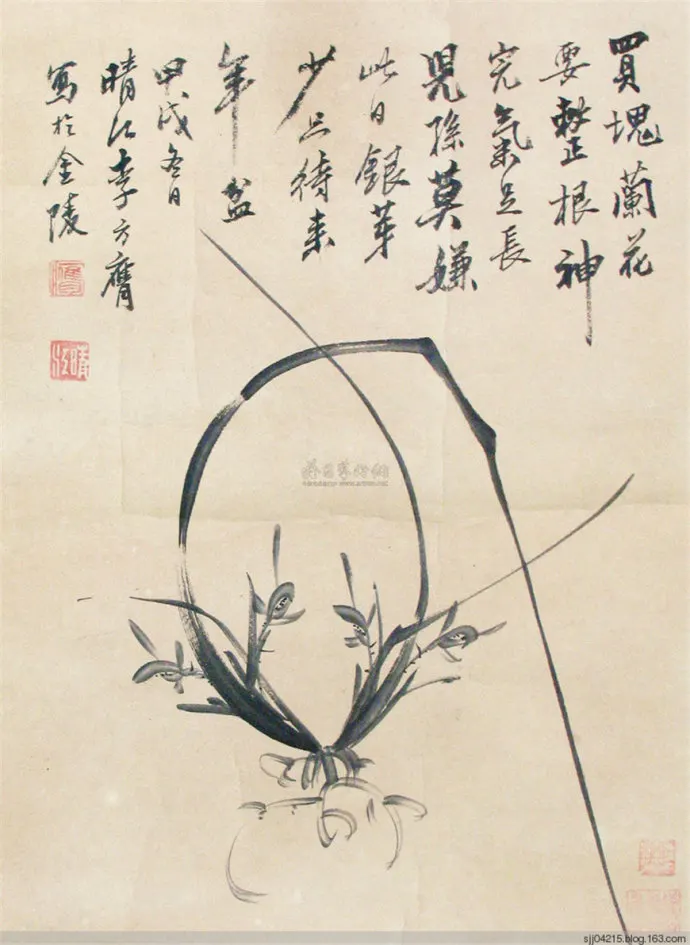 買塊蘭花
要整根神
完氣足長
兒孫莫嫌
此日銀芽
少只待来
年盆
甲戌冬日
晴江李方膺
寫於金陵
晴江
sjj04215.blog.163.com